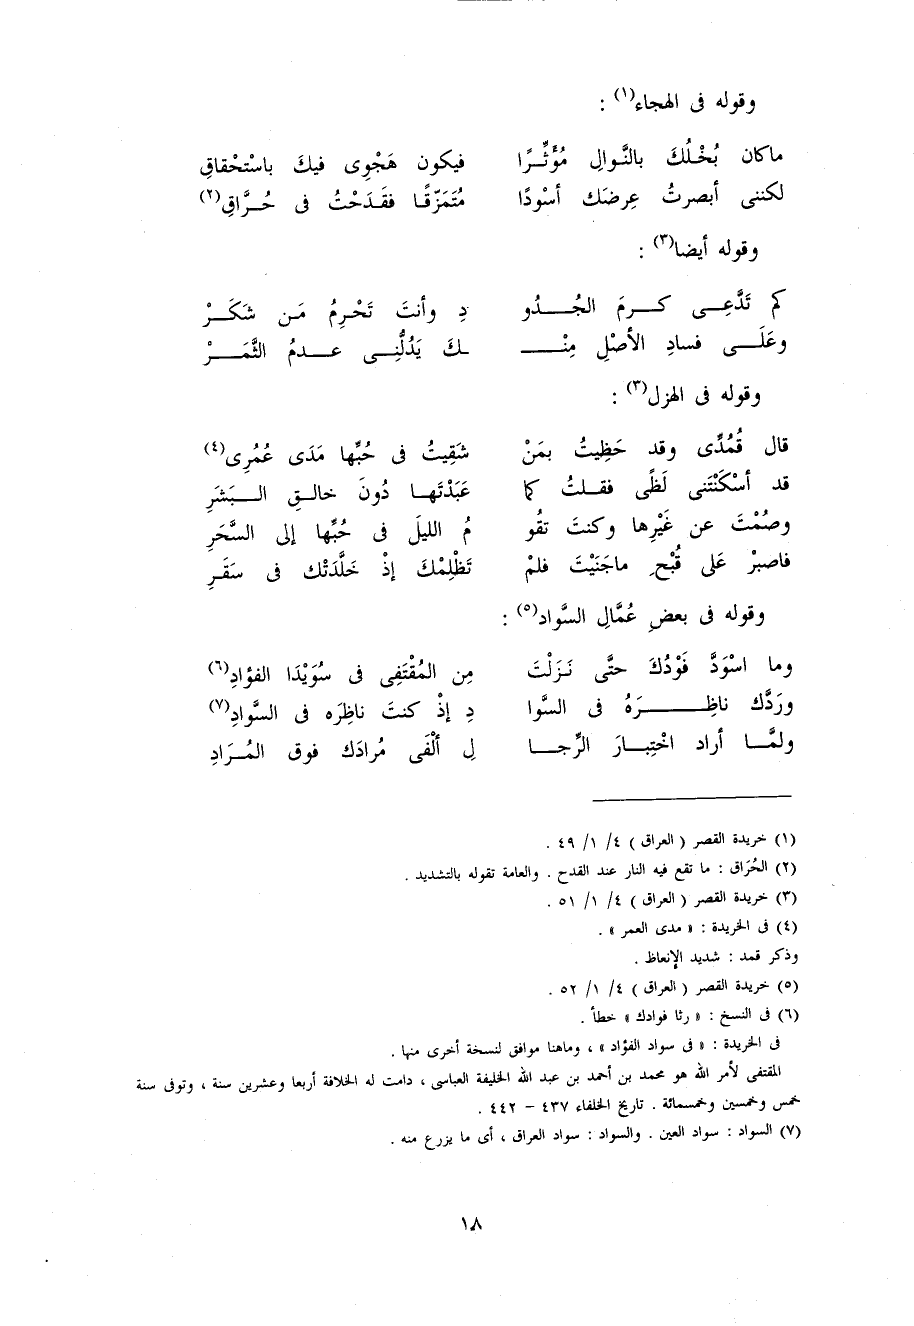 وقوله فى الهجاء(١) :
ماكان بُخْلُكَ بالنَّوالِ مُؤَثِّرًا فيكون هَجْوِى فيكَ باسْتحْقاقِ
لكننى أبصرتُ عِرضَك أسْودًا مُتَمَزّقًا فقَدَحْتُ فى حُرَّاقِ(٢)
وقوله أيضا(٣) :
كم تَدَّعِى كرمَ الجُدُو دِ وأنتَ تَحْرِمُ مَن شَكَرْ
وعَلَى فسادِ الأصْلِ مِنْـ ـكَ يَدُلُّنِى عدمُ الثَّمَرْ
وقوله فى الهزل(٣) :
قال قُمُدِّى وقد حَظِيتُ بمَنْ شَقِيتُ فى حُبِّها مَدَى عُمُرِى(٤)
قد أسْكَنْتَنى لَظًى فقلتُ كما عَبَدْتَها دُونَ خالقِ البَشَرِ
وصُمْتَ عن غَيْرِها وكنتَ تقُو مُ الليلَ فى حُبِّها إلى السَّحَرِ
فاصبرْ عَلَى قُبْحِ ماجَنَيْتَ فلمْ تَظْلِمْكَ إذْ خَلَّدَتْك فى سَقَرِ
وقوله فى بعضِ عُمَّالِ السَّواد(٥) :
وما اسْوَدَّ فَوْدُكَ حتَّى نَزَلْتَ مِن المُقْتَفِى فى سُوَيْدَا الفؤادِ(٦)
ورَدَّك ناظِرَهُ فى السَّوا دِ إذْ كنتَ ناظِرَه فى السَّوادِ(٧)
ولمَّا أراد اخْتِبارَ الرِّجا لِ ألْفَى مُرادَك فوق المُرَادِ
(١) خريدة القصر ( العراق ) ٤/ ١/ ٤٩ .
(٢) الحُرَاق : ما تقع فيه النار عند القدح . والعامة تقوله بالتشديد .
(٣) خريدة القصر ( العراق ) ٤/ ١/ ٥١ .
(٤) فى الخريدة : « مدى العمر » .
وذكر قمد : شديد الإنعاظ .
(٥) خريدة القصر ( العراق ) ٤/ ١/ ٥٢ .
(٦) فى النسخ : « رثا فوادك » خطأ .
فى الخريدة : « فى سواد الفؤاد » ، وماهنا موافق لنسخة أخرى منها .
المقتفى لأمر الله هو محمد بن أحمد بن عبد الله الخليفة العباسى ، دامت له الخلافة أربعا وعشرين سنة ، وتوفى سنة
خمس وخمسين وخمسمائة . تاريخ الخلفاء ٤٣٧ – ٤٤٢ .
(٧) السواد : سواد العين . والسواد : سواد العراق ، أى ما يزرع منه .
١٨